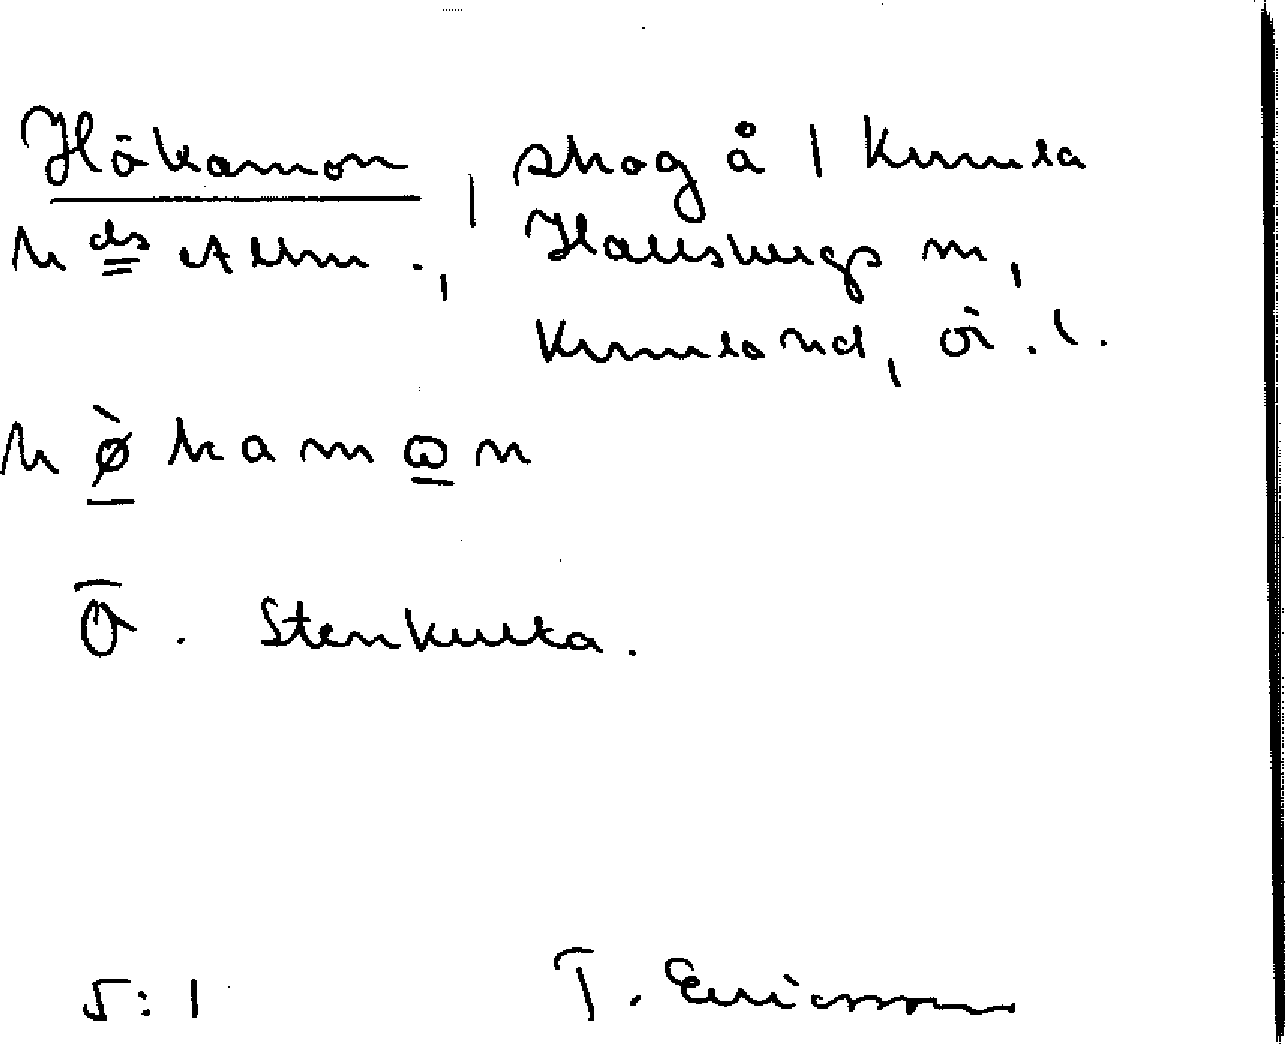 Hökamon, skog å / Kumla
k ds Allm., Hallsbergs m,
Kumland, ör. l.
h ø̀ k a m ω n
Ō. Stenkulla.
5:1 T. Ericsson